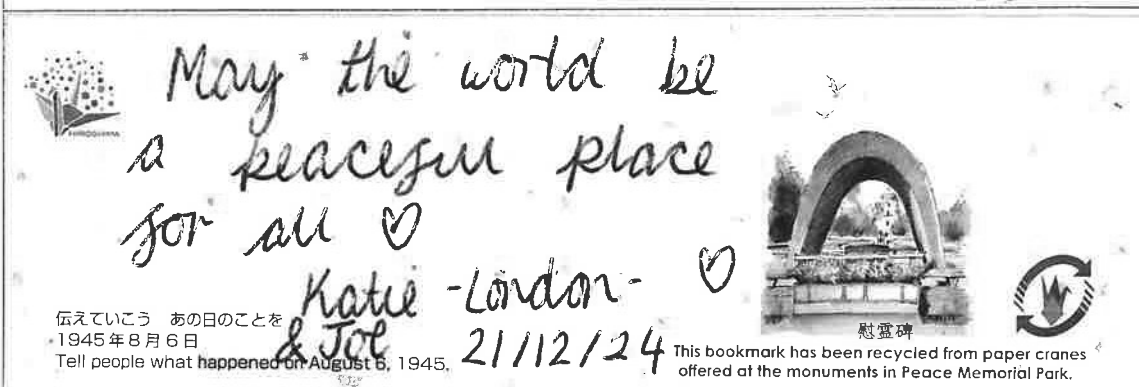 May the world be
a peaceful place
for all ♡
Katie -London- ♡
& Joe 21/12/24
HIROSHIMA
伝えていこう あの日のことを
1945年8月6日
Tell people what happened on August 6, 1945.
慰霊碑
This bookmark has been recycled from paper cranes
offered at the monuments in Peace Memorial Park.